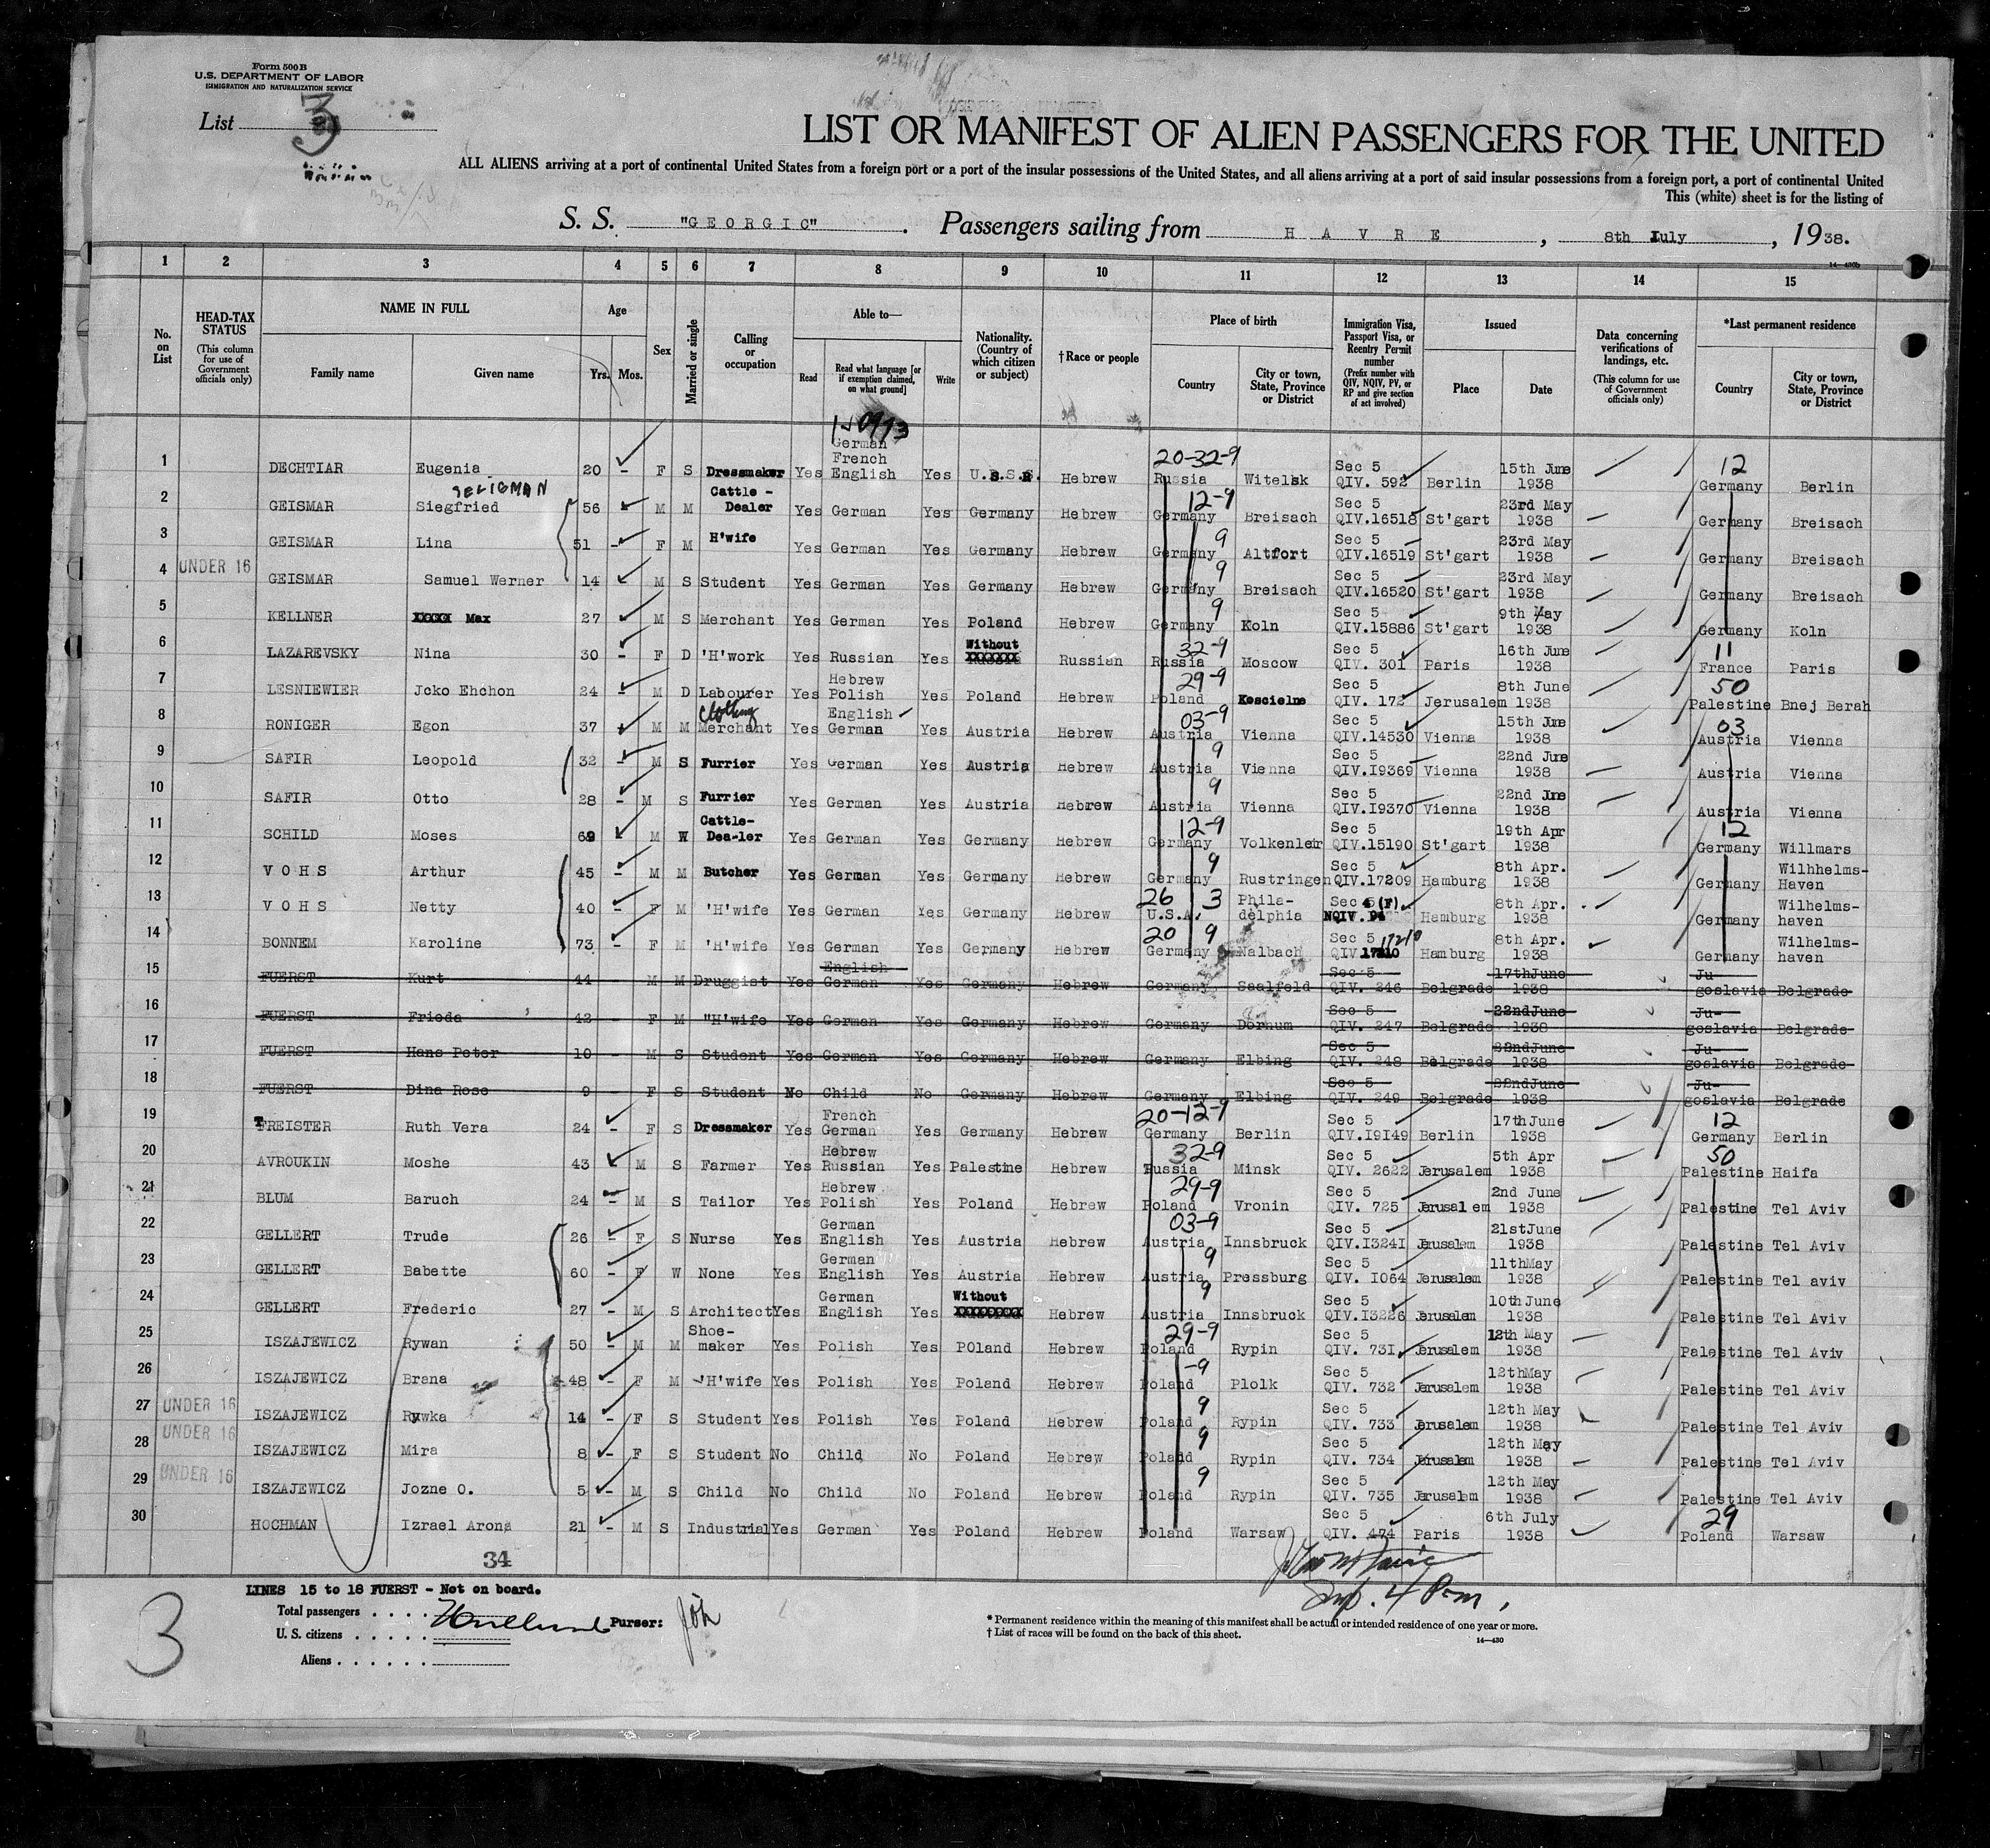 Form 500 B
U.S. DEPARTMENT OF LABOR
IMMIGRATION AND NATURALIZATION SERVICE
List 3
LIST OR MANIFEST OF ALIEN PASSENGERS FOR THE UNITED
ALL ALIENS arriving at a port of continental United States from a foreign port or a port of the insular possessions of the United States, and all aliens arriving at a port of said insular possessions from a foreign port, a port of continental United
This (white) sheet is for the listing of
S. S. "GEORGIC". Passengers sailing from HAVRE, 8th July, 1938.
14—430b
1 2 3 4 5 6 7 8 9 10 11 12 13 14 15
No. on List
HEAD-TAX STATUS (This column for use of Government officials only)
NAME IN FULL Family name Given name
Age Yrs. Mos.
Sex
Married or single
Calling or occupation
Able to— Read Read what language [or if exemption claimed, on what ground] Write
Nationality. (Country of which citizen or subject)
†Race or people
Place of birth Country City or town, State, Province or District
Immigration Visa, Passport Visa, or Reentry Permit number (Prefix number with QIV, NQIV, PV, or RP and give section of act involved)
Issued Place Date
Data concerning verifications of landings, etc. (This column for use of Government officials only)
*Last permanent residence Country City or town, State, Province or District
1 DECHTIAR Eugenia 20 - F S Dressmaker Yes German French English Yes U.S.S.R. Hebrew 20-32-9 Russia Witelsk Sec 5 QIV. 592 Berlin 15th June 1938 12 Germany Berlin
SELIGMAN
2 GEISMAR Siegfried 56 - M M Cattle - Dealer Yes German Yes Germany Hebrew 12-9 Germany Breisach Sec 5 QIV.16518 St'gart 23rd May 1938 Germany Breisach
3 GEISMAR Lina 51 - F M H'wife Yes German Yes Germany Hebrew 9 Germany Altfort Sec 5 QIV.16519 St'gart 23rd May 1938 Germany Breisach
4 UNDER 16 GEISMAR Samuel Werner 14 - M S Student Yes German Yes Germany Hebrew 9 Germany Breisach Sec 5 QIV.16520 St'gart 23rd May 1938 Germany Breisach
5 KELLNER XXXXX Max 27 - M S Merchant Yes German Yes Poland Hebrew 9 Germany Koln Sec 5 QIV.15886 St'gart 9th May 1938 Germany Koln
6 LAZAREVSKY Nina 30 - F D 'H'work Yes Russian Yes Without XXXXXXX Russian 32-9 Russia Moscow Sec 5 QIV. 301 Paris 16th June 1938 11 France Paris
7 LESNIEWIER Jcko Ehchon 24 - M D Labourer Yes Hebrew Polish Yes Poland Hebrew 29-9 Poland Koscielne Sec 5 QIV. 172 Jerusalem 8th June 1938 50 Palestine Bnej Berah
8 RONIGER Egon 37 - M M Clothing Merchant Yes English German Yes Austria Hebrew 03-9 Austria Vienna Sec 5 QIV.14530 Vienna 15th June 1938 03 Austria Vienna
9 SAFIR Leopold 32 - M S Furrier Yes German Yes Austria Hebrew 9 Austria Vienna Sec 5 QIV.I9369 Vienna 22nd June 1938 Austria Vienna
10 SAFIR Otto 28 - M S Furrier Yes German Yes Austria Hebrew 9 Austria Vienna Sec 5 QIV.I9370 Vienna 22nd June 1938 Austria Vienna
11 SCHILD Moses 69 M W Cattle- Dea-ler Yes German Yes Germany Hebrew 12-9 Germany Volkenleir Sec 5 QIV.15190 St'gart 19th Apr 1938 12 Germany Willmars
12 VOHS Arthur 45 - M M Butcher Yes German Yes Germany Hebrew 9 Germany Rustringen Sec 5 QIV.17209 Hamburg 8th Apr. 1938 Germany Wilhhelms-Haven
13 VOHS Netty 40 - F M 'H'wife Yes German Yes Germany Hebrew 26 3 U.S.A. Phila-delphia Sec 4 (F) NQIV. 94 Hamburg 8th Apr. 1938 Germany Wilhelms-haven
14 BONNEM Karoline 73 - F M 'H'wife Yes German Yes Germany Hebrew 20 9 Germany Nalbach Sec 5 17210 QIV 17210 Hamburg 8th Apr. 1938 Germany Wilhelms-haven
15 FUERST Kurt 44 - M M Druggist Yes English German Yes Germany Hebrew Germany Saalfeld Sec 5 QIV. 246 Belgrade 17thJune 1938 Ju-goslavia Belgrade
16 FUERST Frieda 42 - F M "H'wife Yes German Yes Germany Hebrew Germany Dornum Sec 5 QIV. 247 Belgrade 22ndJune 1938 Ju-goslavia Belgrade
17 FUERST Hans Peter 10 - M S Student Yes German Yes Germany Hebrew Germany Elbing Sec 5 QIV. 248 Belgrade 22ndJune 1938 Ju-goslavia Belgrade
18 FUERST Dina Rose 9 - F S Student No Child No Germany Hebrew Germany Elbing Sec 5 QIV. 249 Belgrade 22ndJune 1938 Ju-goslavia Belgrade
19 TREISTER Ruth Vera 24 - F S Dressmaker Yes French German Yes Germany Hebrew 20-12-9 Germany Berlin Sec 5 QIV.I9I49 Berlin 17thJune 1938 12 Germany Berlin
20 AVROUKIN Moshe 43 - M S Farmer Yes Hebrew Russian Yes Palestine Hebrew 32-9 Russia Minsk Sec 5 QIV. 2622 Jerusalem 5th Apr 1938 50 Palestine Haifa
21 BLUM Baruch 24 - M S Tailor Yes Hebrew Polish Yes Poland Hebrew 29-9 Poland Vronin Sec 5 QIV. 725 Jerusalem 2nd June 1938 Palestine Tel Aviv
22 GELLERT Trude 26 - F S Nurse Yes German English Yes Austria Hebrew 03-9 Austria Innsbruck Sec 5 QIV.I324I Jerusalem 21stJune 1938 Palestine Tel Aviv
23 GELLERT Babette 60 - F W None Yes German English Yes Austria Hebrew 9 Austria Pressburg Sec 5 QIV. I064 Jerusalem 11thMay 1938 Palestine Tel aviv
24 GELLERT Frederic 27 - M S Architect Yes German English Yes Without XXXXXXXXX Hebrew 9 Austria Innsbruck Sec 5 QIV.I3226 Jerusalem 10thJune 1938 Palestine Tel Aviv
25 ISZAJEWICZ Rywan 50 - M M Shoe-maker Yes Polish Yes POland Hebrew 29-9 Poland Rypin Sec 5 QIV. 731 Jerusalem 12th May 1938 Palestine Tel Aviv
26 ISZAJEWICZ Brana 48 - F M 'H'wife Yes Polish Yes Poland Hebrew -9 Poland Plolk Sec 5 QIV. 732 Jerusalem 12thMay 1938 Palestine Tel Aviv
27 UNDER 16 ISZAJEWICZ Rywka 14 - F S Student Yes Polish Yes Poland Hebrew 9 Poland Rypin Sec 5 QIV. 733 Jerusalem 12th May 1938 Palestine Tel Aviv
28 UNDER 16 ISZAJEWICZ Mira 8 - F S Student No Child No Poland Hebrew 9 Poland Rypin Sec 5 QIV. 734 Jerusalem 12th May 1938 Palestine Tel Aviv
29 UNDER 16 ISZAJEWICZ Jozne O. 5 - M S Child No Child No Poland Hebrew 9 Poland Rypin Sec 5 QIV. 735 Jerusalem 12th May 1938 Palestine Tel Aviv
30 HOCHMAN Izrael Arona 21 - M S Industrial Yes German Yes Poland Hebrew Poland Warsaw Sec 5 QIV. 474 Paris 6th July 1938 29 Poland Warsaw
34
LINES 15 to 18 FUERST - Not on board.
Total passengers . . . .
Purser:
U. S. citizens . . . . .
Aliens . . . . . .
3
*Permanent residence within the meaning of this manifest shall be actual or intended residence of one year or more.
†List of races will be found on the back of this sheet.
14—430